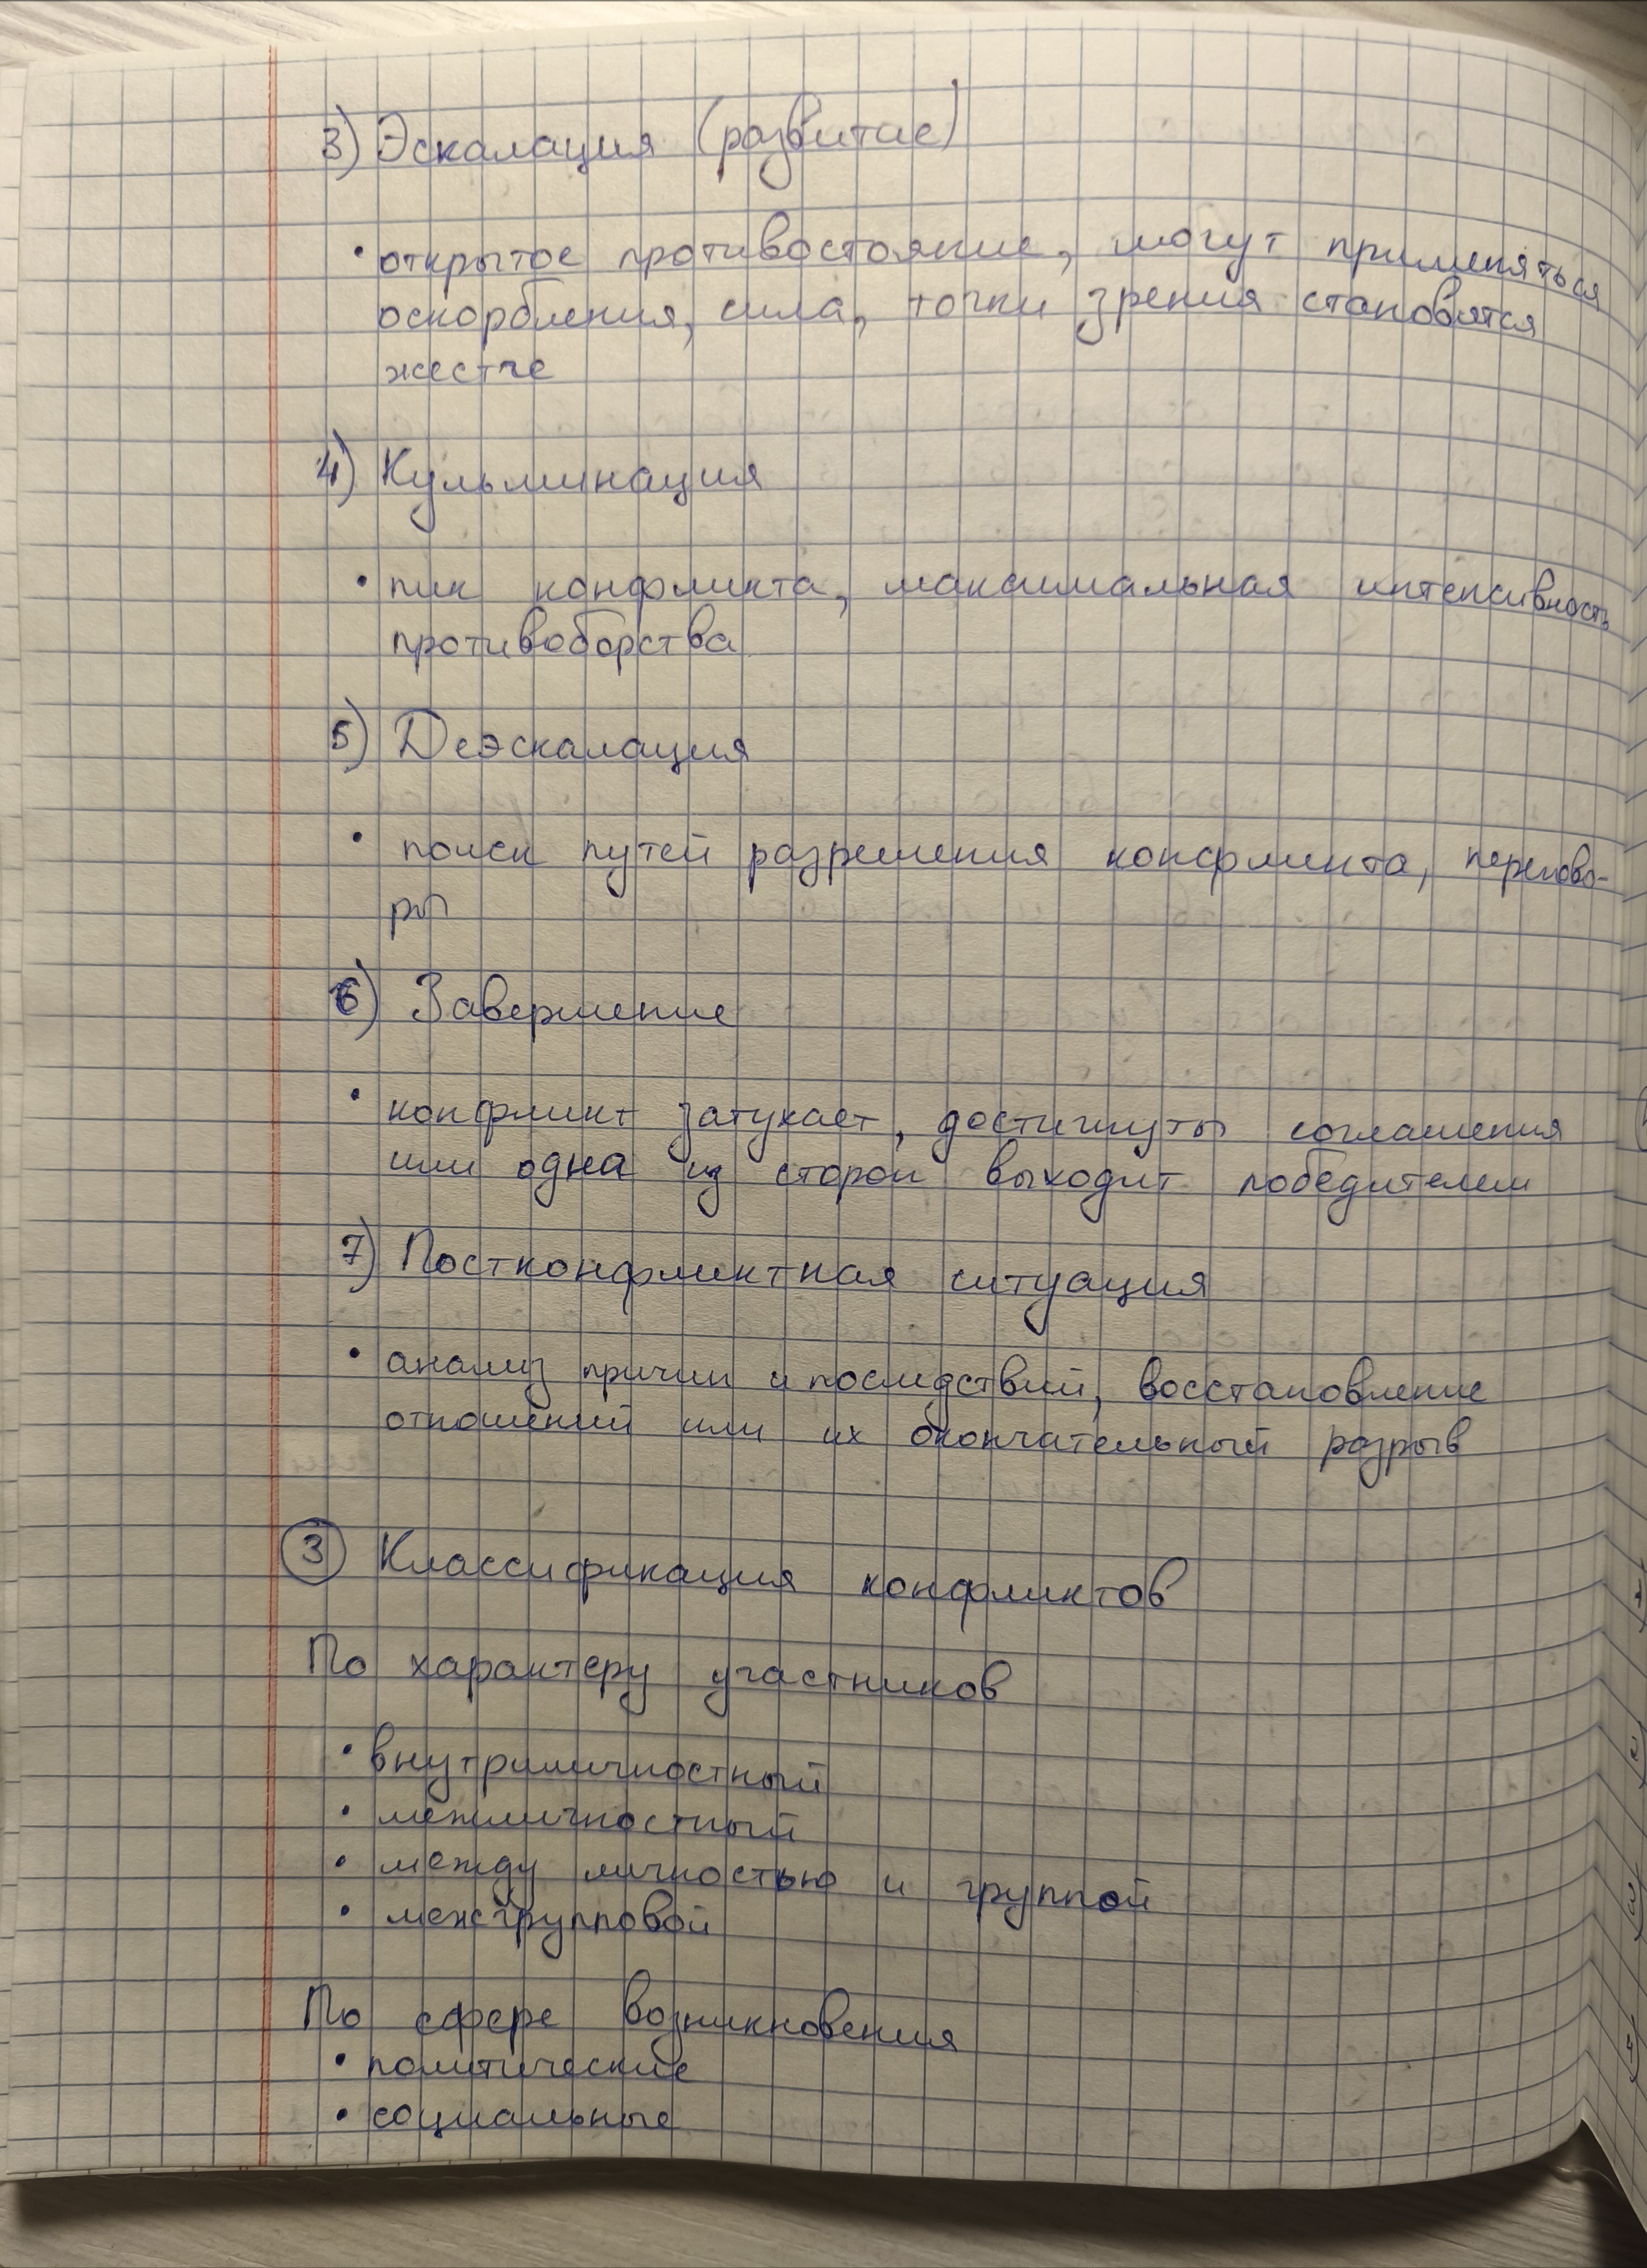 3) Эскалация (развитие)
• открытое противостояние, могут применяться
оскорбления, сила, точки зрения становятся
жестче
4) Кульминация
• пик конфликта, максимальная интенсивность
противоборства
5) Деэскалация
• поиск путей разрешения конфликта, перегово-
ры
6) Завершение
• конфликт затухает, достигнуты соглашения
или одна из сторон выходит победителем
7) Постконфликтная ситуация
• анализ причин и последствий, восстановление
отношений или их окончательный разрыв
3 Классификация конфликтов
По характеру участников
• внутриличностный
• межличностный
• между личностью и группой
• межгрупповой
По сфере возникновения
• политические
• социальные